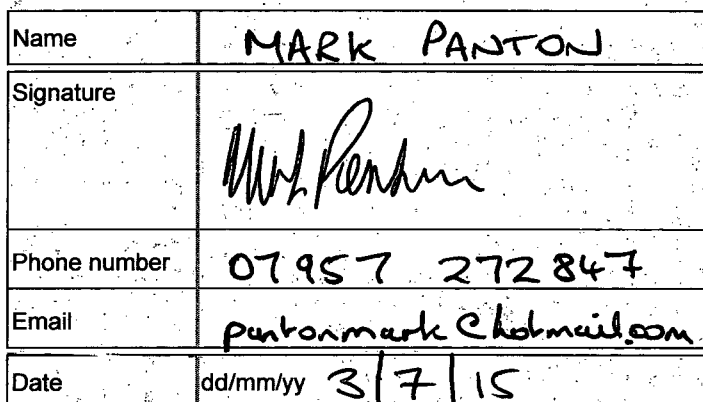 Name MARK PANTON
Signature Mark Panton
Phone number 07957 272847
Email pantonmark@hotmail.com
Date dd/mm/yy 3/7/15